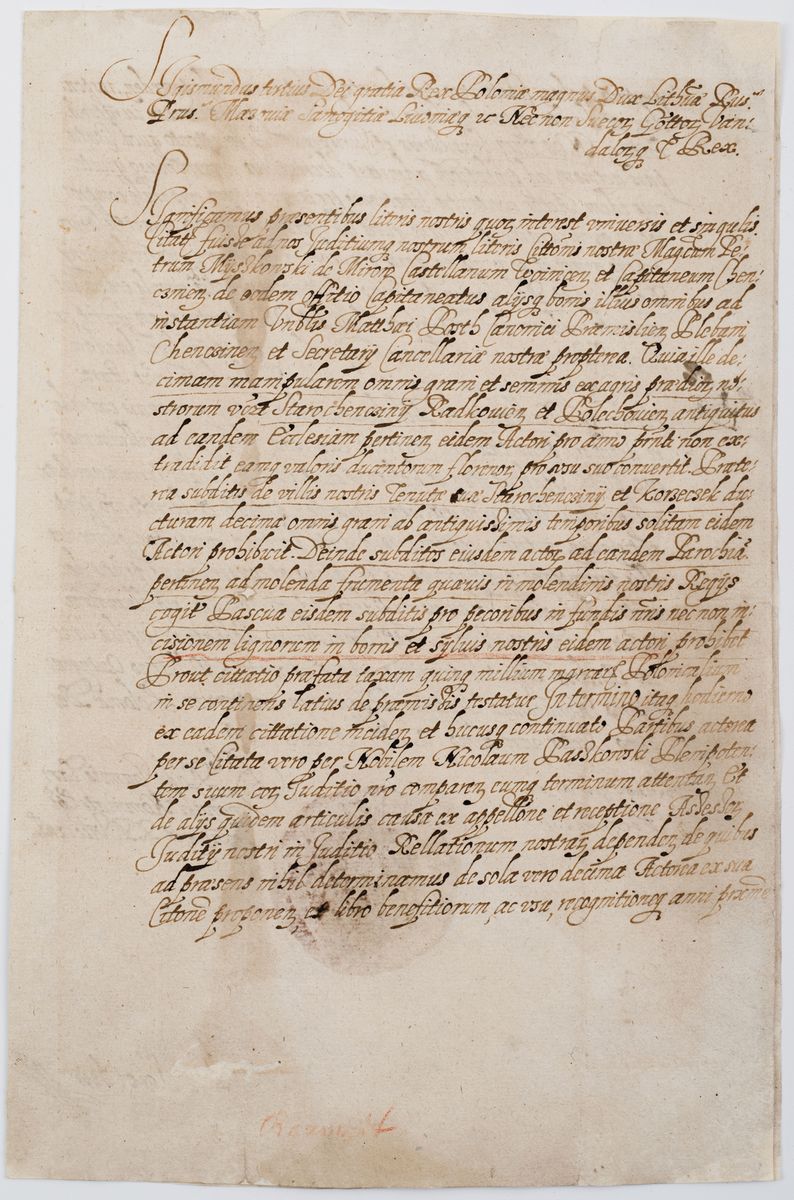 Sigismundus tertius Dei gratia Rex Poloniæ magnus Dux Lithuæ Rus:
Prus: Mazouiæ Samogitiæ Liuoniæq ꝛc Necnon Suecor Gottor Van:
dalorq Rex.
Significamus præsentibus literis nostris quor interest vniuersis et singulis.
Citat fuisse ad nos Juditiumq nostrum literis Cittōnis nostræ Magcum Pe:
trum Myszkowski de Mirow Castellanum et Capitaneum Chen:
cinen de eodem offitio Capitaneatus alysq bonis illius omnibus ad
instantiam Vnblis Matthæi Canonici Præmislien Plebani
Chencinen et Secretarij Cancellariæ nostræ propterea. Quia ille de:
cimam manipularem omnis grani et seminis ex agris prædior no:
strorum Starochencinij Radkowien et Polechowien antiquitus
ad eandem Ecclesiam pertinen eidem Actori pro anno prnti non ex:
tradidit eamq valoris ducentorum florenor pro vsu suo conuertit. Præte:
rea subditis de villis nostris Tenutæ suæ Starochencinij et Korzeczek du:
cturam decimæ omnis grani ab antiquissimis temporibus solitam eidem
Actori prohibuit. Deinde subditos eiusdem actor ad eandem Parochiā
pertinen ad molenda frumenta quæuis in molendinis nostris Regijs
cogit Pascua eisdem subditis pro pecoribus in fundis nris nec non in:
cisionem lignorum in borris et syluis nostris eidem actori prohibet
Prout cittatio præfata taxam quinq millium marcar Polonicalium
in se continens latius de præmissis testatur In termino itaq hodierno
ex eadem cittatione inciden et hucusq continuato Partibus actorea
per se Citata vero per Nobilem Nicolaum Paszkowski Plenipoten:
tem suum cor Juditio nro comparen eumq terminum attentan Et
de alys quidem articulis causæ ex appellōne et receptione
Juditij nostri in Juditio Rellationum nostrar dependen de quibus
ad præsens nihil determinamus de sola vero decima Actorea ex sua
Citōne proponen et libro benefitiorum, ac vsu, recognitioneq anni præ